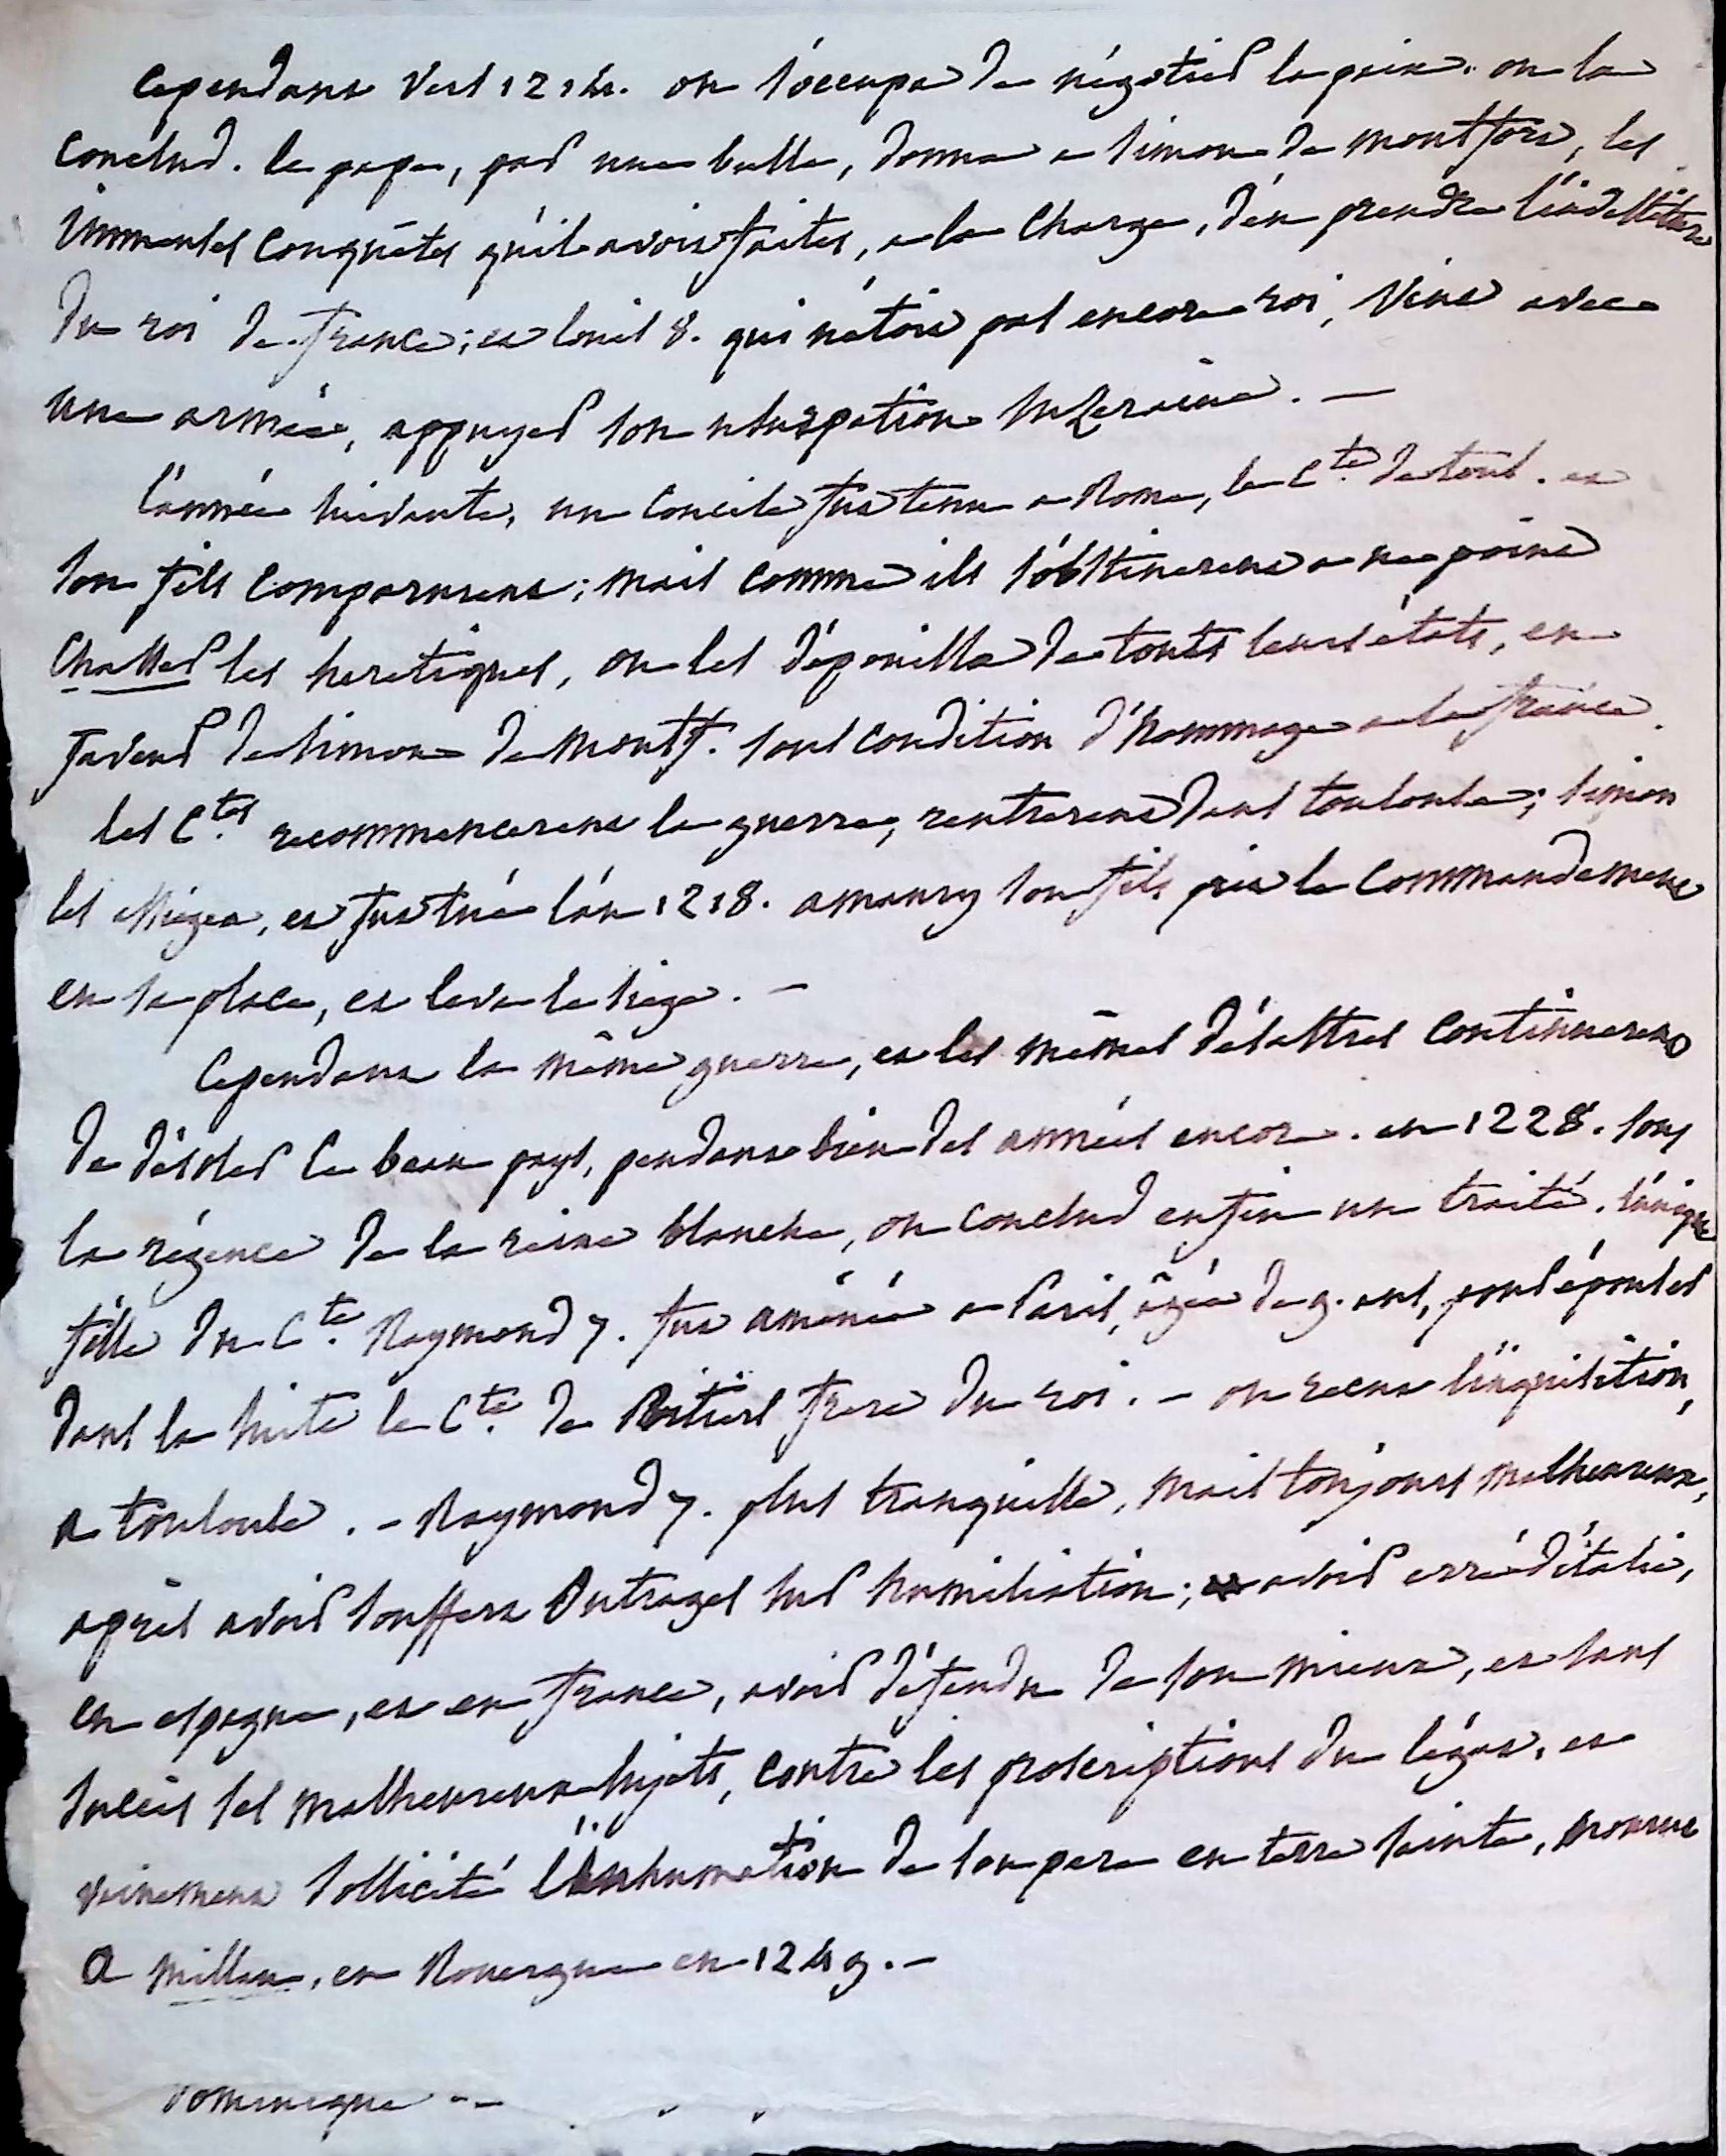 Cependant vers 1214. on s'occupa de négotier la paix. on la
conclud. le pape, par une bulle, donna a simon de montfort, les
immenses conquêtes qu'il avoit faites, a la charge, d'en prendre l'investiture
du roi de france; et louis 8. qui n'étoit pas encore roi, vint avec
une armée, appuyer son usurpation suzeraine. —
L'année suivante, un concile fut tenu a Rome, le C.te de toul. et
son fils comparurent; mais comme ils s'obstinerent a ne point
chasser les heretiques, on les dépouilla de touts leurs états, en
faveur de simon de montf. sous condition d'hommage a la france.
les C.tes recommencerent la guerre, rentrerent dans toulouse; simon
les assiégea, et fut tué l'an 1218. amaury son fils prit le commandement
en sa place, et leva le siége. —
Cependant la même guerre, et les mêmes désastres continuerent
de désoler ce beau pays, pendant bien des années encore. en 1228. sous
la régence de la reine blanche, on conclud enfin un traité. l'unique
fille du C.te Raymond 7. fut amenée a Paris, agée de 9. ans, pour épouser
dans la suite le C.te de Poitiers frere du roi. — on recut l'inquisition,
a toulouse. — Raymond 7. plus tranquille, mais toujours malheureux,
après avoir souffert outrages sur humiliation; avoir erré d'italie,
en espagne, et en france, avoir défendu de son mieux, et sans
succès ses malheureux sujets, contre les proscriptions du légat, et
vainement sollicité l'inhumation de son pere en terre sainte, mourut
a millau, en Rouergue en 1249. —
Dominique --